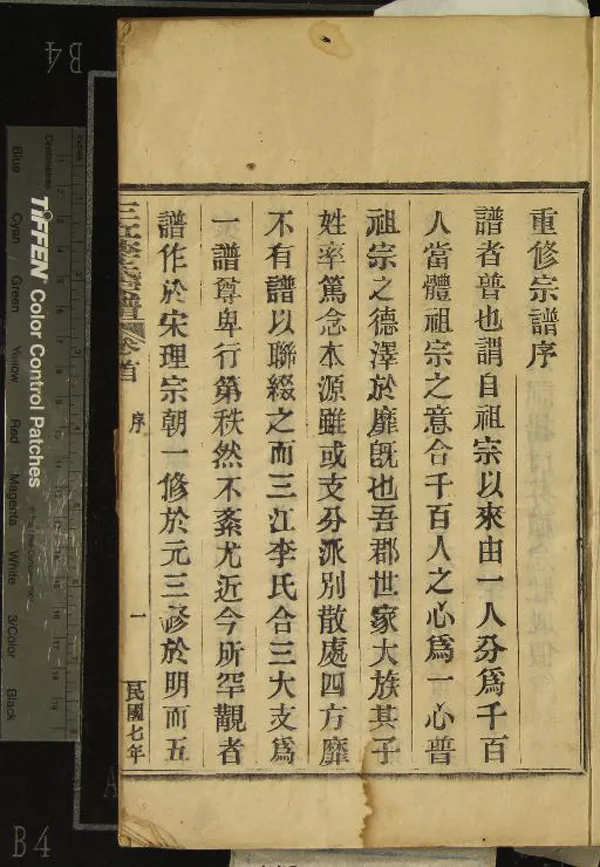 重修宗譜序
譜者普也謂自祖宗以來由一人分爲千百
人當體祖宗之意合千百人之心爲一心普
祖宗之德澤於靡旣也吾郡世家大族其子
姓率篤念本源雖或支分派別散處四方靡
不有譜以聯綴之而三江李氏合三大支爲
一譜尊卑行第秩然不紊尤近今所罕覯者
譜作於宋理宗朝一修於元三修於明而五
三江李氏宗譜 卷首 序 一 民國七年
B4
TIFFEN Color Control Patches
Blue
Cyan
Green
Yellow
Red
Magenta
White
3/Color
Black
Centimetres
Inches
B4
A